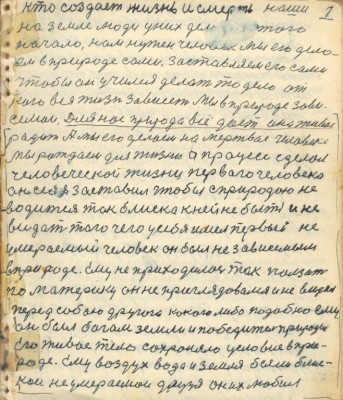 кто создает жизнь и смерть наши 1
на земле люди у них дело того
начало, нам нужен человек мы его дела-
ем в природе сами. Заставляем его сами
чтобы он учился делать то дело от
кого вся жизнь зависет мы в природе зави-
семся. Для нас природа всё дает она живая
радит А мы его делаем на мертвае человека
мы рождаем для жизни а процесс сделал
человеческой жизни первого человека
он себя заставил чтобы с природою не
водится так блиска к ней не быть и не
видать того чего у себя имел первый не
умераемый человек он был не зависемым
в природе. Ему не приходилось так ползат
по материку он не приглядовался и не видел
перед собою другого какого либо подобно ему
он был богам земли и победитель природы
Его живое тело сохроняло условие в при-
роде. Ему воздух вода и земля были блис-
кои не умераемой друзя он их любил